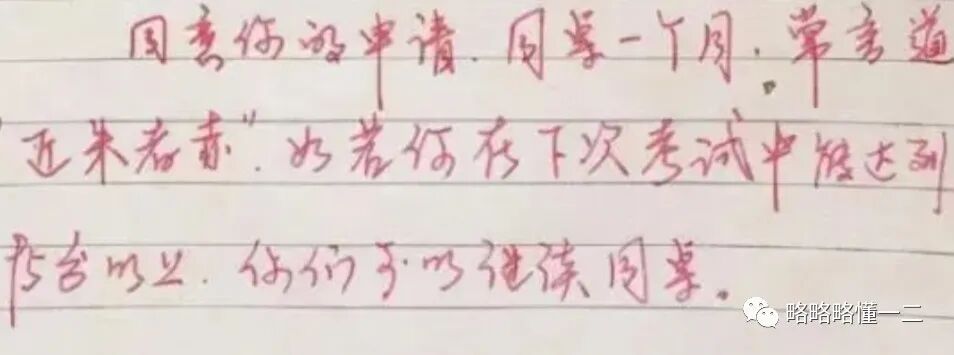 同意你的申请.同桌一个月.常言道
"近朱者赤".如若你在下次考试中能达到
75分以上.你们可以继续同桌。
略略略懂一二